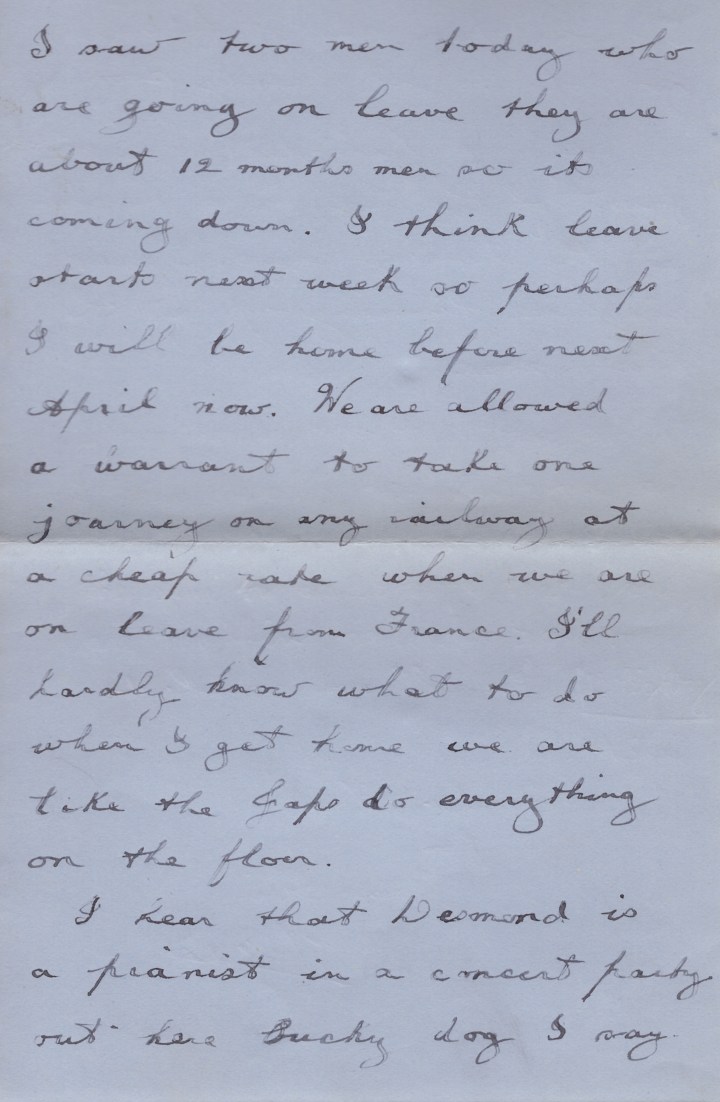 I saw two men today who
are going on leave they are
about 12 months men so its
coming down. I think leave
starts next week so perhaps
I will be home before next
April now. We are allowed
a warrant to take one
journey on any railway at
a cheap rate when we are
on leave from France. I'll
hardly know what to do
when I get home we are
like the Japs do everything
on the floor.
I hear that Desmond is
a pianist in a concert party
out here Lucky dog I say.